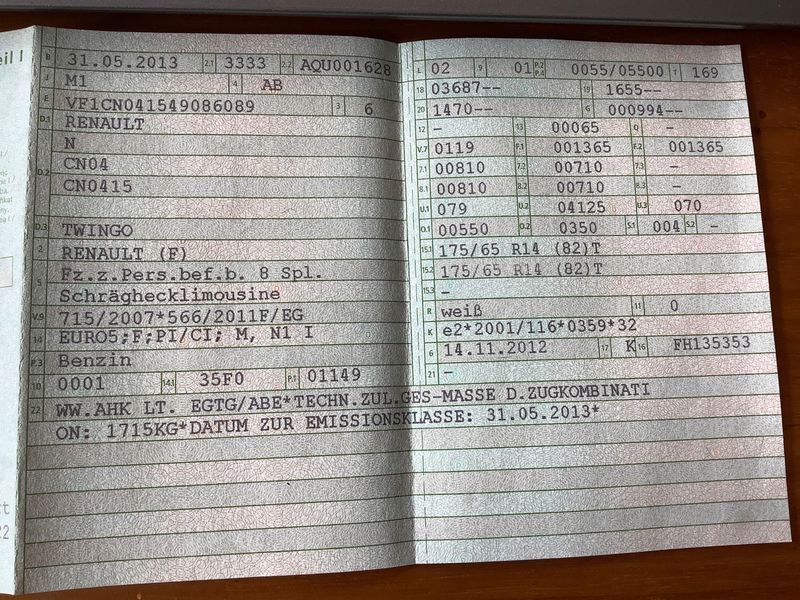 eil I
B 31.05.2013 2.1 3333 2.2 AQU001628
J M1 4 AB
E VF1CN041549086089 3 6
D.1 RENAULT
N
D.2 CN04
CN0415
D.3 TWINGO
2 RENAULT (F)
5 Fz.z.Pers.bef.b. 8 Spl.
Schräghecklimousine
V.9 715/2007*566/2011F/EG
14 EURO5;F;PI/CI; M, N1 I
P.3 Benzin
10 0001 14.1 35F0 P.1 01149
L 02 9 01 P.2 P.4 0055/05500 T 169
18 03687-- 19 1655--
20 1470-- G 000994--
12 - 13 00065 Q -
V.7 0119 F.1 001365 F.2 001365
7.1 00810 7.2 00710 7.3 -
8.1 00810 8.2 00710 8.3 -
U.1 079 U.2 04125 U.3 070
O.1 00550 O.2 0350 S.1 004 S.2 -
15.1 175/65 R14 (82)T
15.2 175/65 R14 (82)T
15.3 -
R weiß 11 0
K e2*2001/116*0359*32
6 14.11.2012 17 K 16 FH135353
21 -
22 WW.AHK LT. EGTG/ABE*TECHN.ZUL.GES-MASSE D.ZUGKOMBINATI
ON: 1715KG*DATUM ZUR EMISSIONSKLASSE: 31.05.2013*